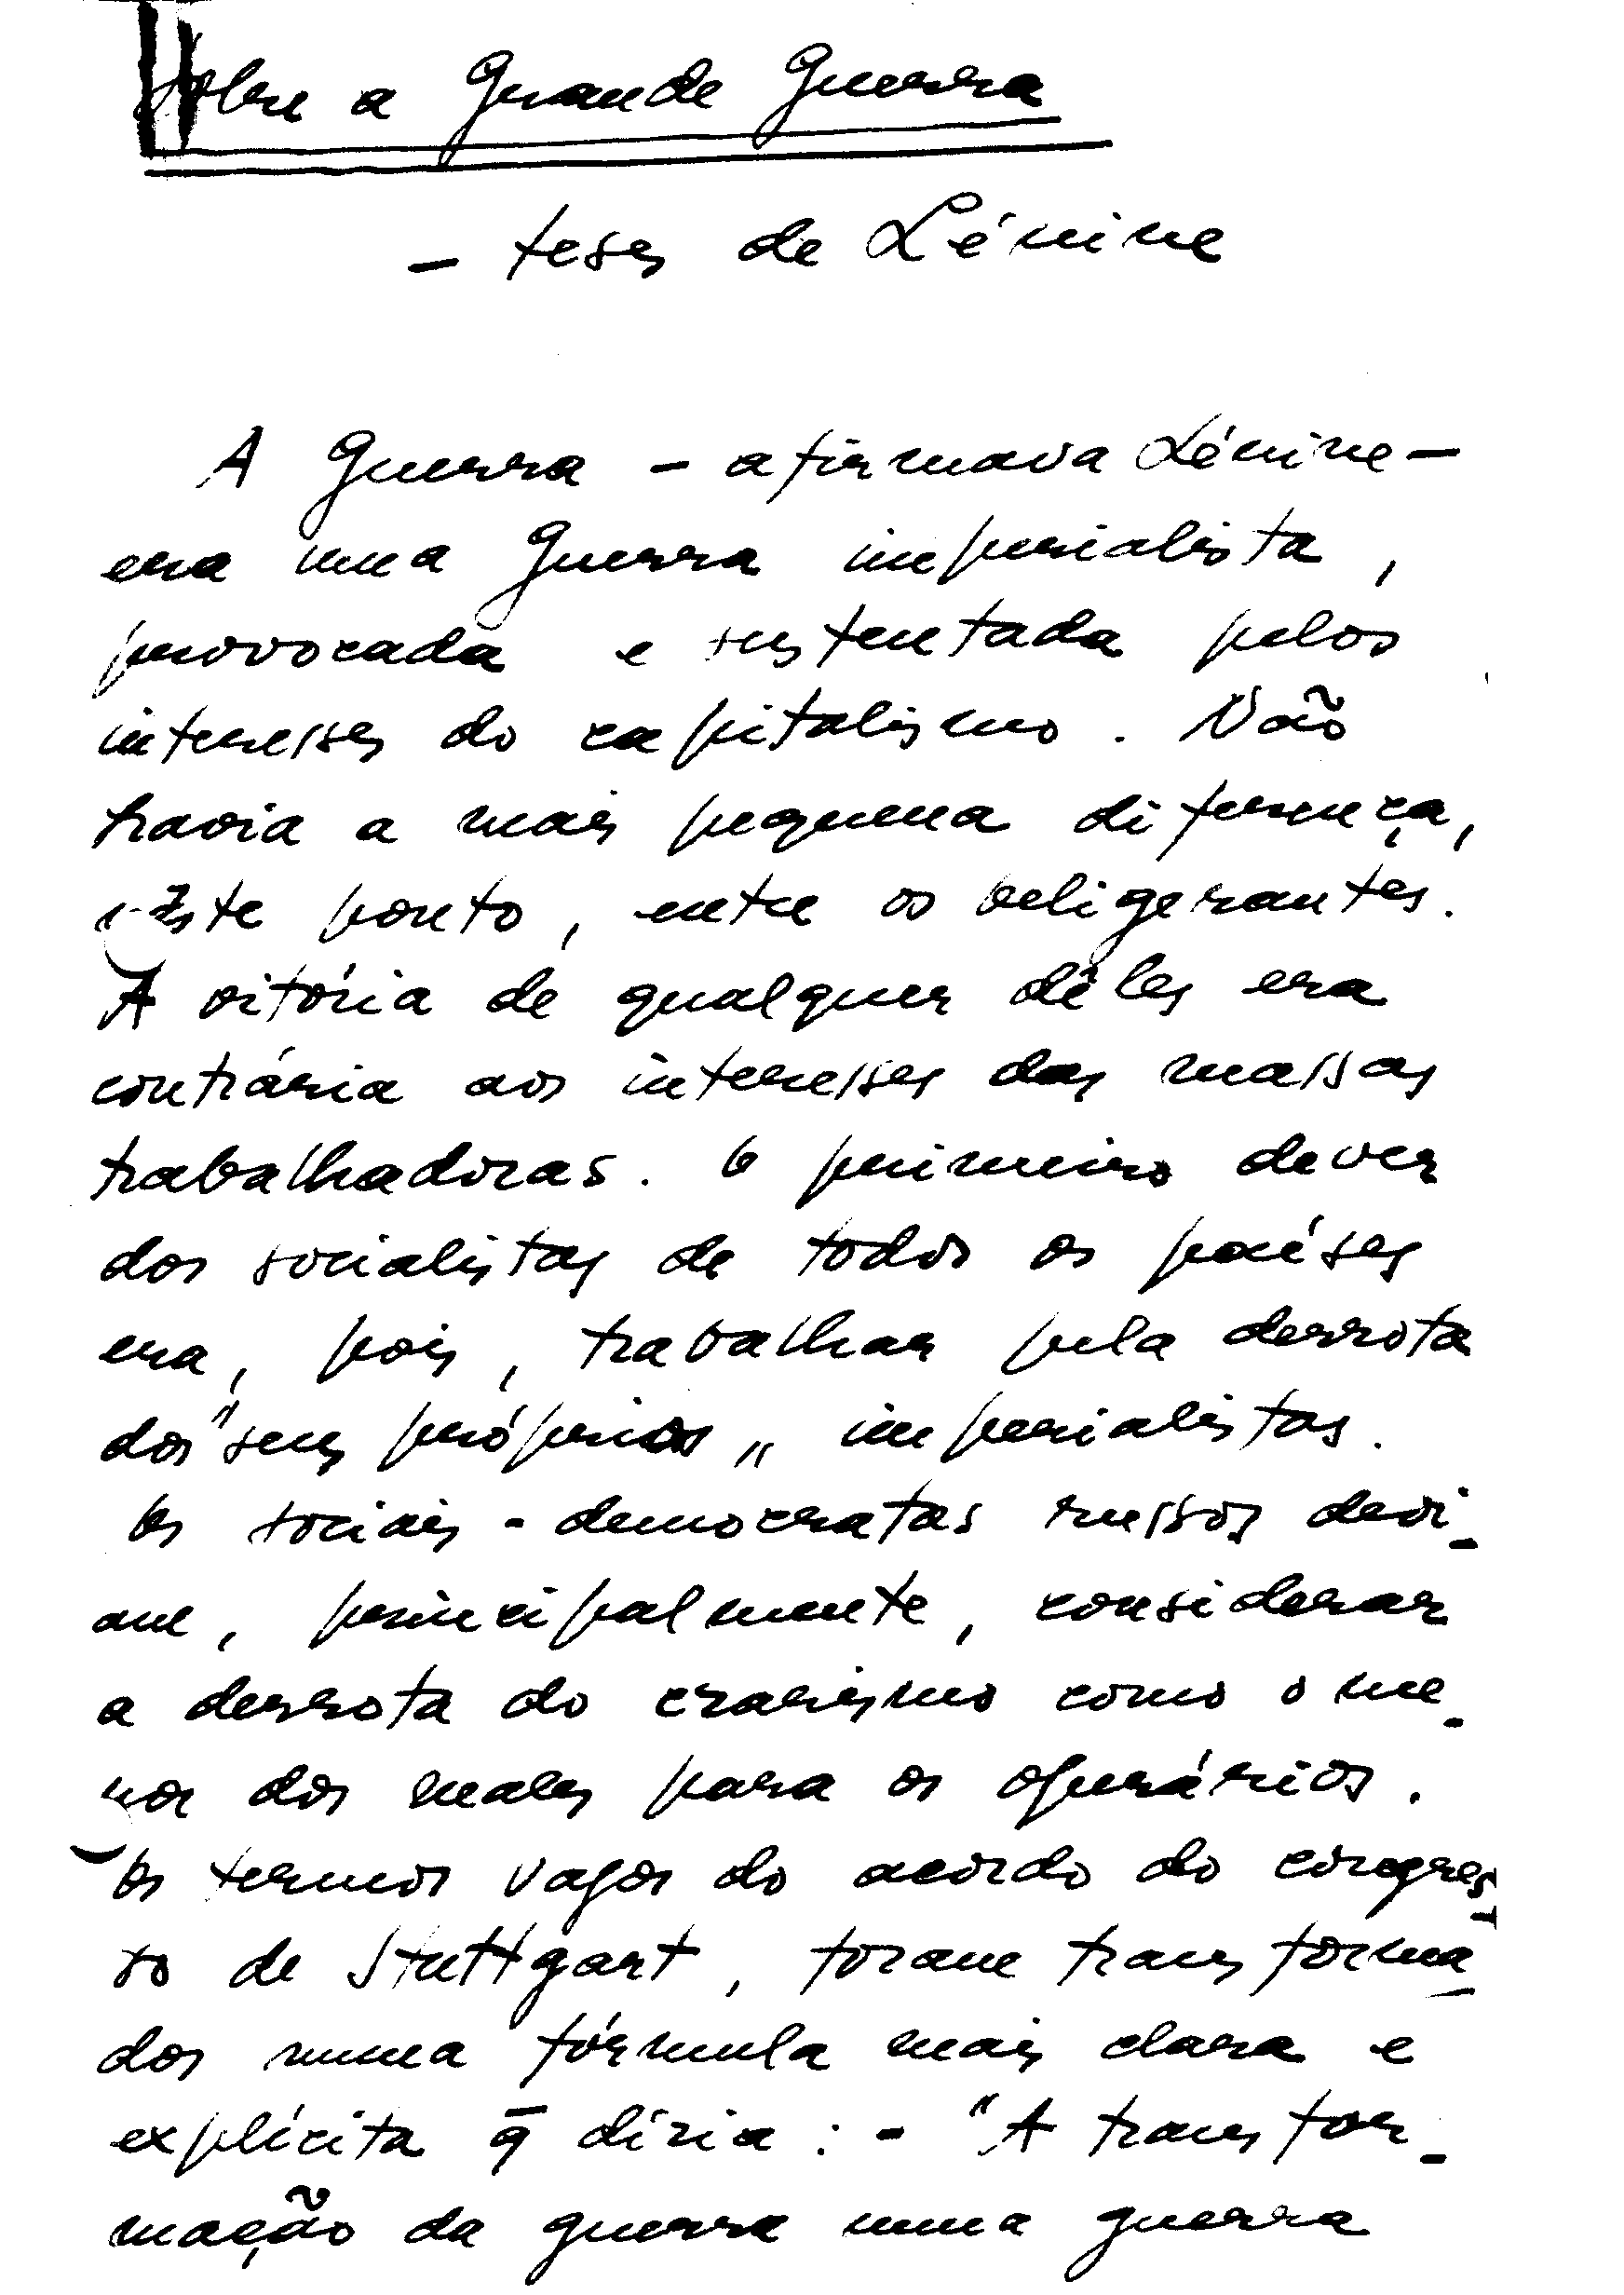 Sobre a Grande Guerra
- teses de Lénine
A Guerra - afirmava Lénine -
era uma Guerra imperialista,
provocada e sustentada pelos
interesses do capitalismo. Não
havia a mais pequena diferença,
neste ponto, entre os beligerantes.
A vitória de qualquer dêles era
contrária aos interesses das massas
trabalhadoras. O primeiro dever
dos socialistas de todos os países
era, pois, trabalhar pela derrota
dos "seus próprios" imperialistas.
Os sociais-democratas russos devi-
am, principalmente, considerar
a derrota do czarismo como o me-
nor dos males para os operários.
Os termos vagos do acordo do congres-
so de Stuttgart, foram transforma-
dos numa fórmula mais clara e
explícita q̄ dizia: - "A transfor-
mação da guerra numa guerra